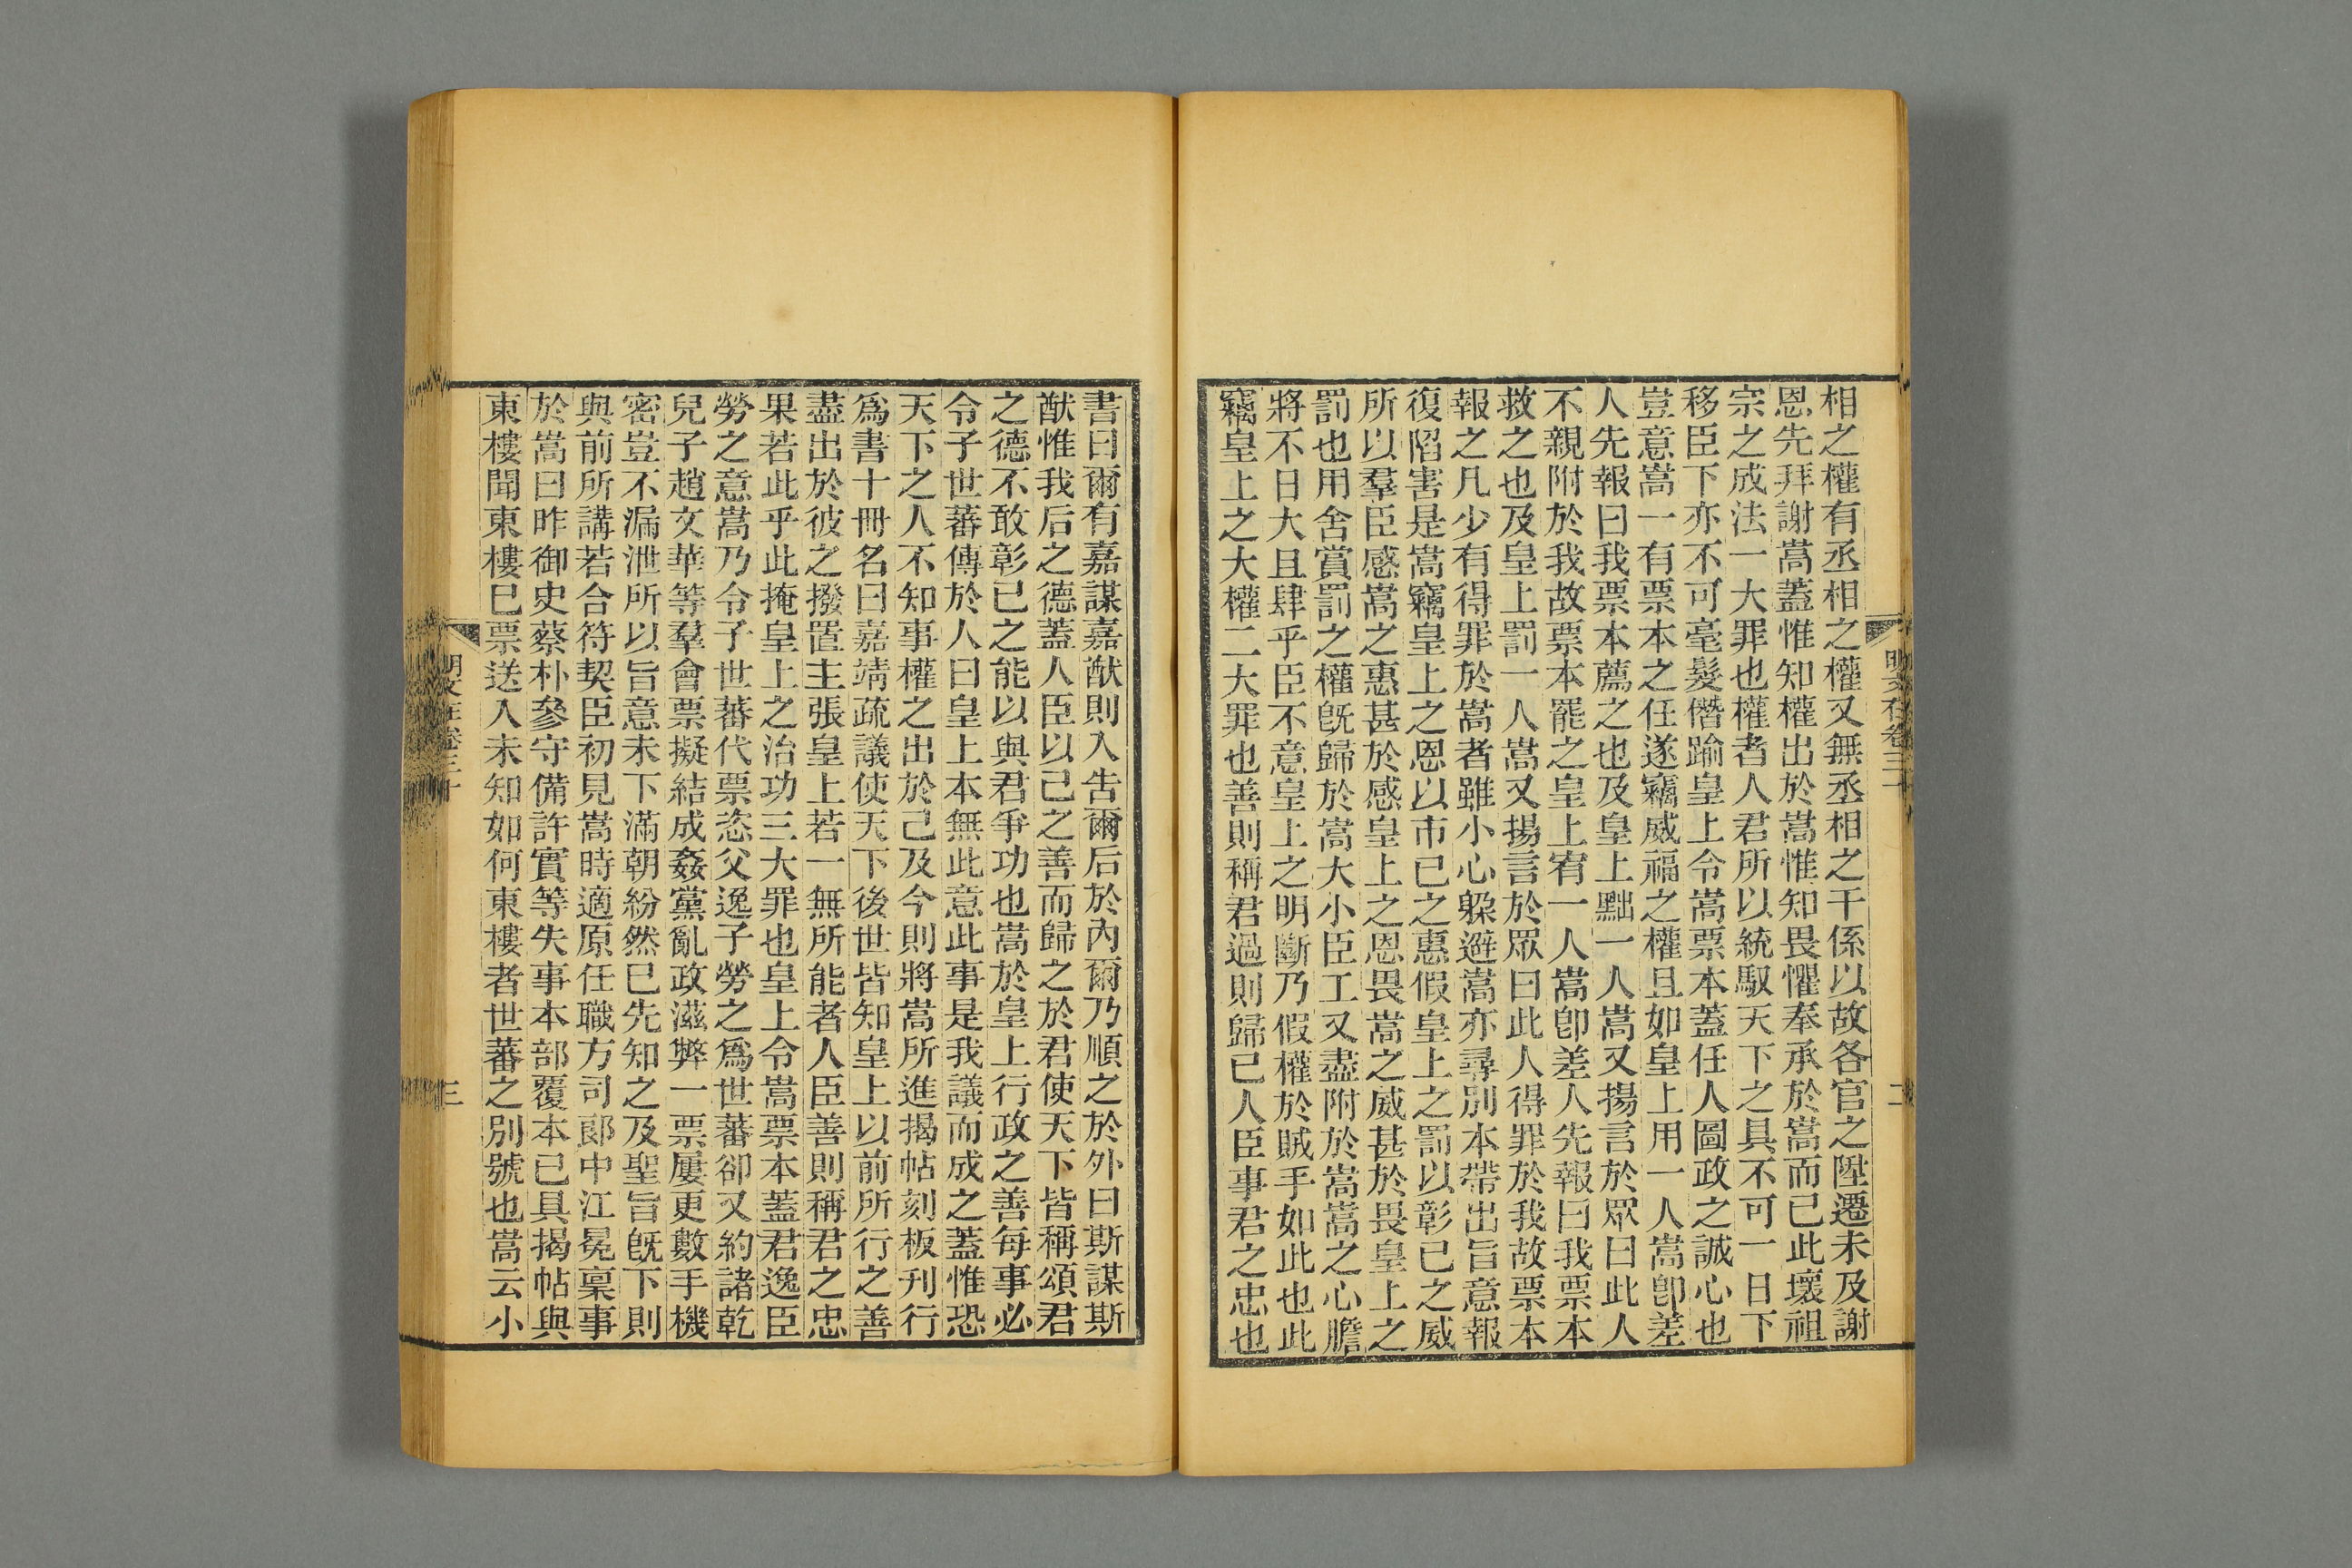 相之權有丞相之權又無丞相之干係以故各官之陞遷未及謝
恩先拜謝嵩蓋惟知權出於嵩惟知畏懼奉承於嵩而已此壞祖
宗之成法一大罪也權者人君所以統馭天下之具不可一日下
移臣下亦不可毫髮僭踰皇上令嵩票本蓋任人圖政之誠心也
豈意嵩一有票本之任遂竊威福之權且如皇上用一人嵩卽差
人先報曰我票本薦之也及皇上黜一人嵩又揚言於眾曰此人
不親附於我故票本罷之皇上宥一人嵩卽差人先報曰我票本
救之也及皇上罰一人嵩又揚言於眾曰此人得罪於我故票本
報之凡少有得罪於嵩者雖小心躱避嵩亦尋別本帶出旨意報
復陷害是嵩竊皇上之恩以市已之惠假皇上之罰以彰已之威
所以羣臣感嵩之惠甚於感皇上之恩畏嵩之威甚於畏皇上之
罰也用舍賞罰之權旣歸於嵩大小臣工又盡附於嵩嵩之心膽
將不日大且肆乎臣不意皇上之明斷乃假權於賊手如此也此
竊皇上之大權二大罪也善則稱君過則歸已人臣事君之忠也
明文在卷三十
二
書曰爾有嘉謀嘉猷則入告爾后於內爾乃順之於外曰斯謀斯
猷惟我后之德蓋人臣以己之善而歸之於君使天下皆稱頌君
之德不敢彰已之能以與君爭功也嵩於皇上行政之善每事必
令子世蕃傳於人曰皇上本無此意此事是我議而成之蓋惟恐
天下之人不知事權之出於己及今則將嵩所進揭帖刻板刊行
爲書十冊名曰嘉靖疏議使天下後世皆知皇上以前所行之善
盡出於彼之撥置主張皇上若一無所能者人臣善則稱君之忠
果若此乎此掩皇上之治功三大罪也皇上令嵩票本蓋君逸臣
勞之意嵩乃令子世蕃代票恣父逸子勞之爲世蕃卻又約諸乾
兒子趙文華等羣會票擬結成姦黨亂政滋弊一票屢更數手機
密豈不漏泄所以旨意未下滿朝紛然已先知之及聖旨旣下則
與前所講若合符契臣初見嵩時適原任職方司郎中江冕稟事
於嵩曰昨御史蔡朴參守備許實等失事本部覆本已具揭帖與
東樓聞東樓已票送入未知如何東樓者世蕃之別號也嵩云小
明文在卷三十
三